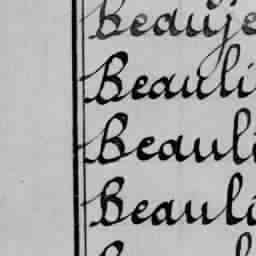 Beauje
Beauli
Beauli
Beauli